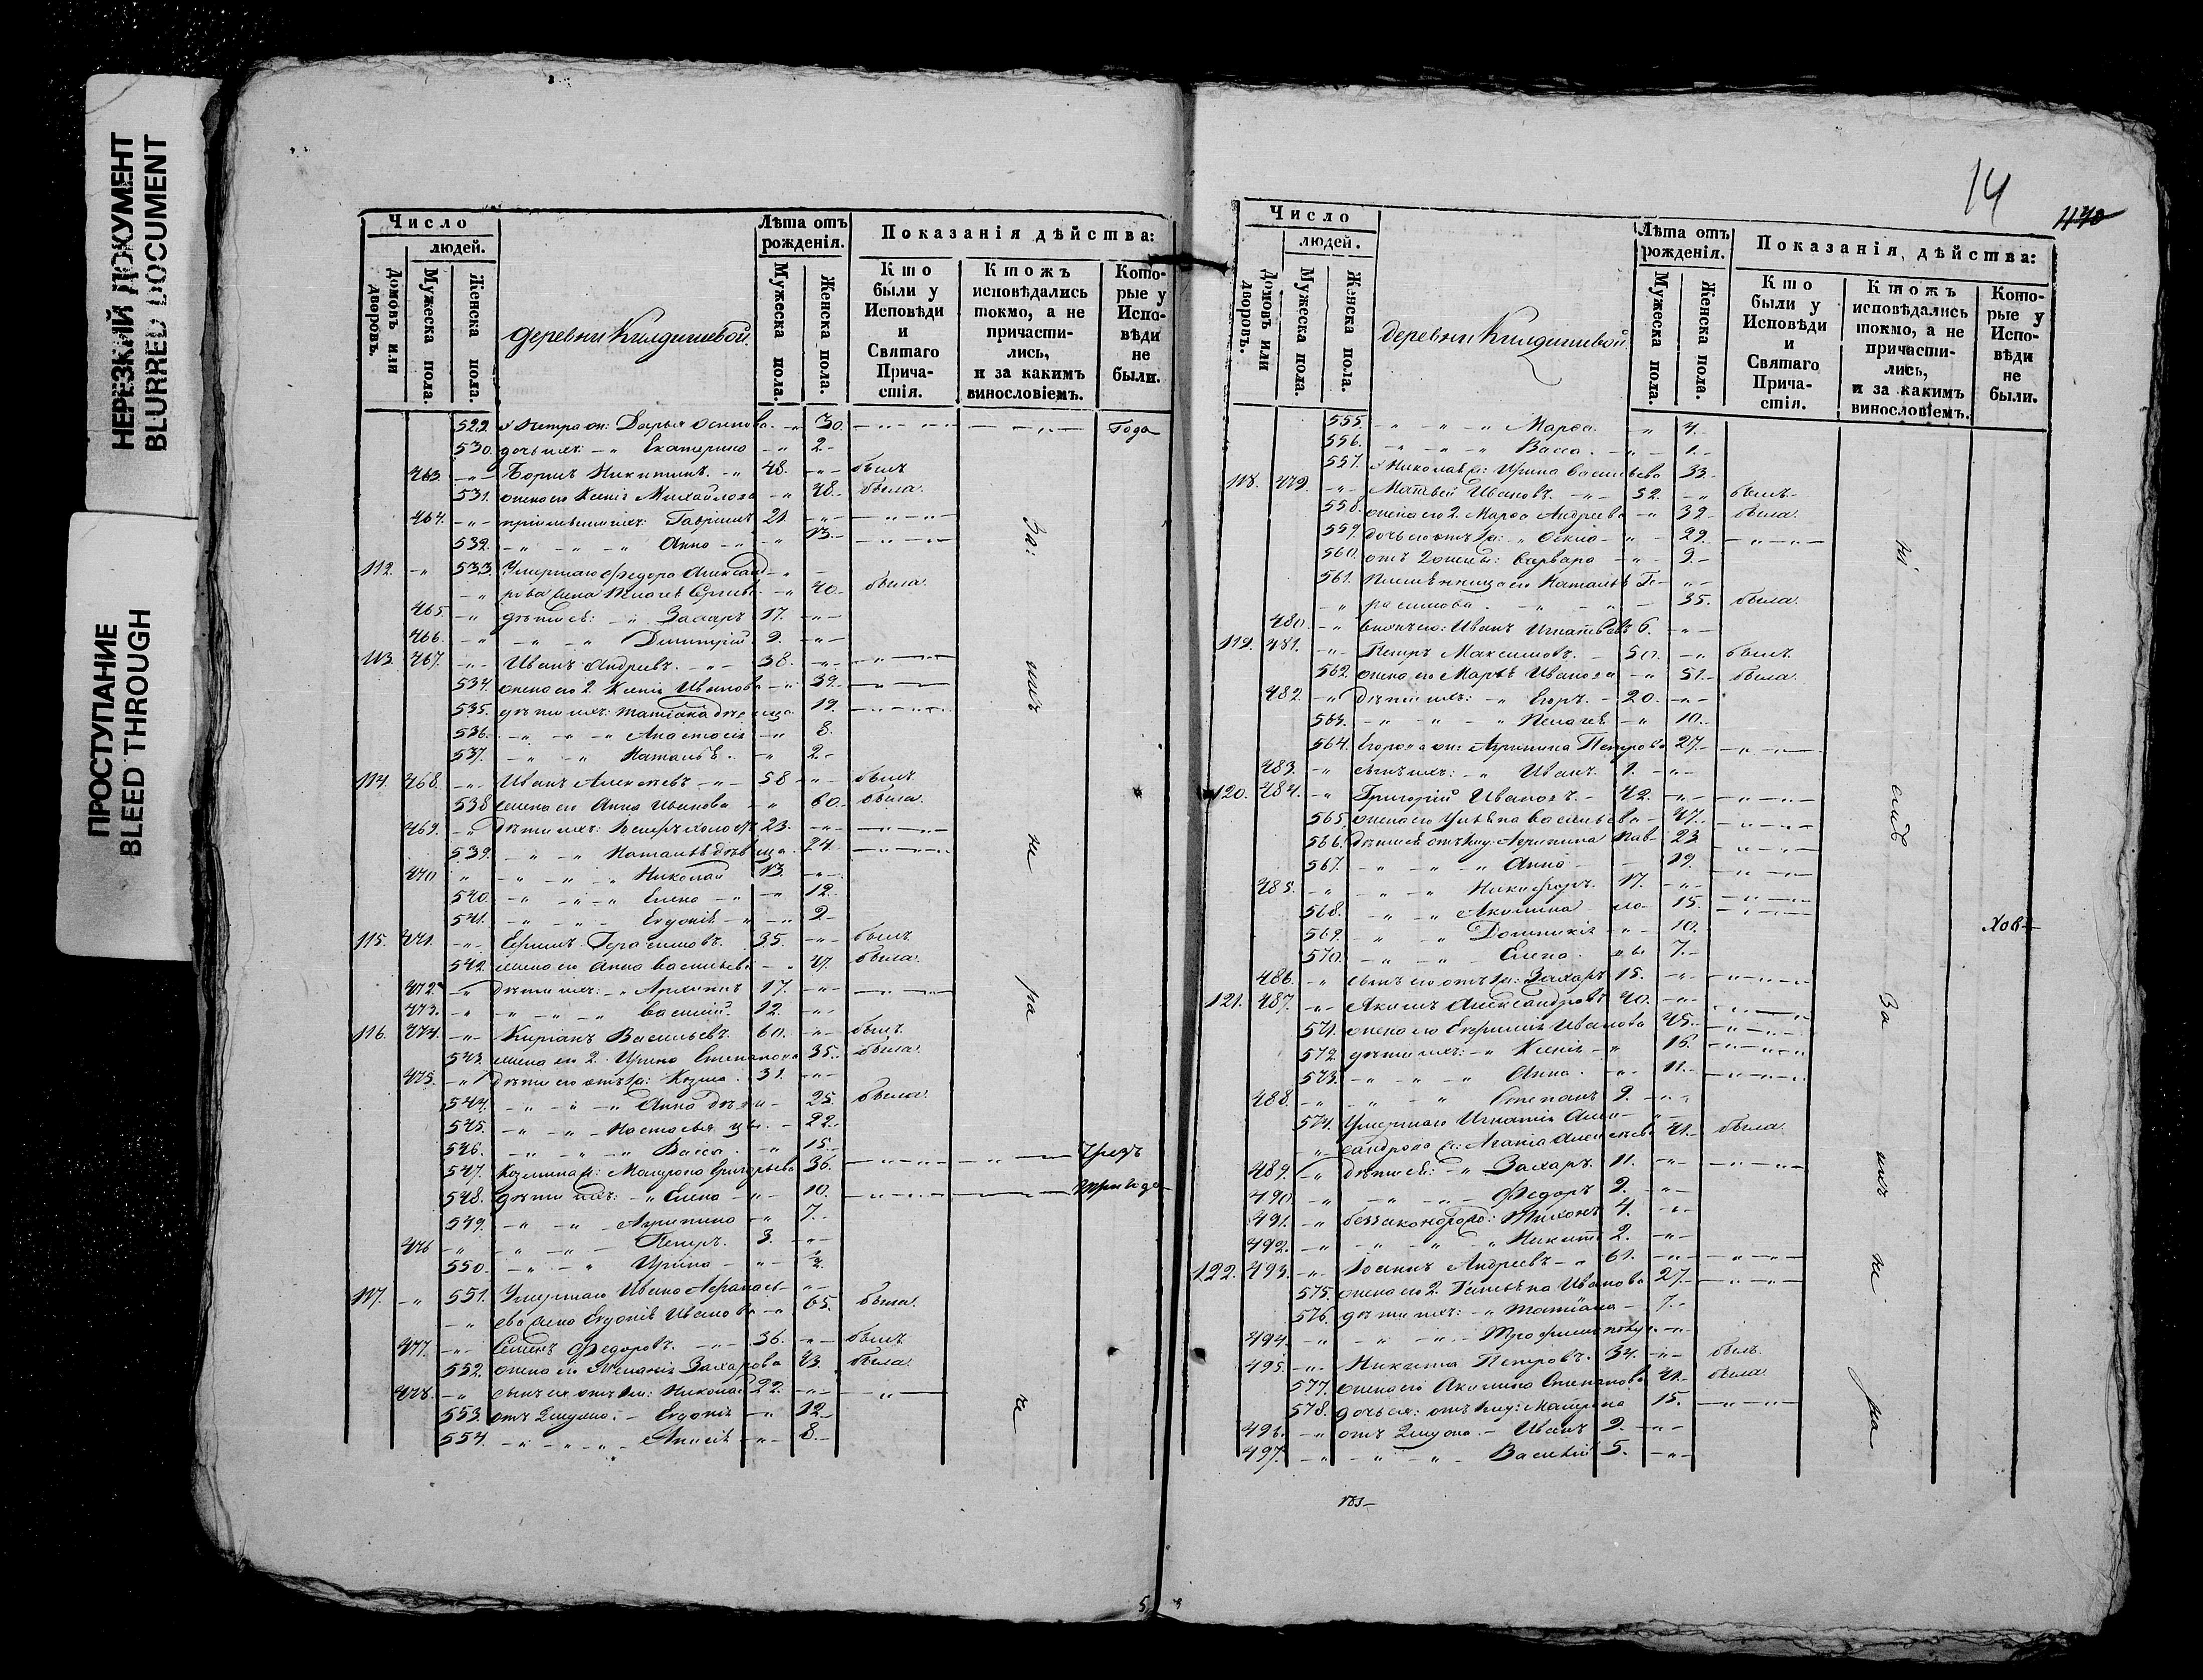 НЕРЕЗКИЙ ДОКУМЕНТ
BLURRED DOCUMENT
ПРОСТУПАНИЕ
BLEED THROUGH
Число
людей.
Домовъ или дворовъ.
Мужеска пола.
Женска пола.
деревни Килдишевой
Лѣта отъ рожденія.
Мужеска пола.
Женска пола.
Показанія дѣйства:
Кто были у Исповѣди и Святаго Причастія.
Ктожъ исповѣдались токмо, а не причастились, и за какимъ винословіемъ.
Которые у Исповѣди не были.
529. Петра жн: Дарья Осипова 30 года
530. дочь ихъ Екатерина 2
463. Борисъ Никитинъ 48. былъ
531. жена его Ксенія Михайлова 48. была
464. Гавріилъ 21
532. Анна 13
112. 533. Умершаго Федора Александ
рова жена Пелагея Сергѣева 40. была
465. дѣти ея: Захаръ 17.
466. Димитрій 9.
113. 467. Иванъ Андреевъ 38.
534. жена его 2 Ксенія Иванова 39.
535. дѣти ихъ: Татіана дѣвица 19.
536. Анастасія 8.
537. Наталья 2
114. 468. Иванъ Алексѣевъ 58 былъ
538 жена его Анна Иванова 60. была
469. дѣти ихъ: холостъ 23.
539. Наталья дѣвица 24.
470 Николай 13.
540. Елена 12.
541. Евдокія 9
115. 471. Ефимъ Герасимовъ 35. былъ
542. жена его Анна Васильева 47. была
472. дѣти ихъ: Архипъ 17.
473. Василій 12.
116. 474. Киріанъ Васильевъ 60. былъ
543. жена его 2 Ирина Степанова 35. была
475. дѣти его отъ 1й: Козма 31.
544. Анна 25. была
545. Настасья 22.
546. Васса 15.
547. Козмина ж: Маврона Григорьева 36.
548. дѣти ихъ: Елена 10. три года
549. Агрипина 7.
476 Петръ 3.
550. Ирина
117. 551. Умершаго Ивана Афанась
ева жена Евдокія Иванова 65. была
477. Семенъ Федоровъ 36. былъ
552. жена его Меланія Захарова 43. была
478. сынъ ея отъ 1го: Николай 22.
553. отъ 2 мужа: Евдокія 12
554. Анисія 8.
За:
ихъ
не
ра
че
14
440
Число
людей.
Домовъ или дворовъ.
Мужеска пола.
Женска пола.
деревни Килдишевой
Лѣта отъ рожденія.
Мужеска пола.
Женска пола.
Показанія дѣйства:
Кто были у Исповѣди и Святаго Причастія.
Ктожъ исповѣдались токмо, а не причастились, и за какимъ винословіемъ.
Которые у Исповѣди не были.
555. Марфа 4.
556. Васса 1.
557. Николаева ж: Ирина Васильева 33
118. 479. Матвей Ивановъ 52. былъ
558. жена его 2 Марфа Андреева 39. была
559. дочь его отъ 1й: 29.
560. отъ 2 жены: Варвара 9.
561. Племѣнница его Наталья Ге
расимова 35. была
480. внукъ его: Иванъ Игнатьевъ 6.
119. 481. Петръ Максимовъ 50. былъ
562. жена его Марья Иванова 51. была
482. дѣти ихъ: Егоръ 20.
563. Пелагея 10.
564. Егорова жн: Агрипина Петрова 27.
483. сынъ ихъ: Иванъ 1.
120. 484. Григорій Ивановъ 42.
565. жена его Ульяна Васильева 47.
566. Агрипина 23
567. Анна 19.
485. Никифоръ 17.
568. Акилина 15.
569. Домникія 10.
570. Елена 7.
486. сынъ его отъ 1й: Захаръ 15.
121. 487. Якимъ Александровъ 40.
571. жена его Ефимія Иванова 45.
572. дѣти ихъ: Ксенія 15.
573. Анна 11.
488. Степанъ 9.
574. Умершаго Игнатія Алек
сандрова ж: Агафія Алексѣева 41. была
489. дѣти ея: Захаръ 11.
490. Федоръ 9.
491. беззаконорожд: Тихонъ 4.
492. Никита 2.
122. 493. Іоаннъ Андреевъ 61.
575. жена его 2 Татьяна Иванова 27.
576. дѣти ихъ: Татіана 7.
494. Трофимъ
495. Никита Петровъ 34. былъ
577. жена его Акилина Степанова 41. была
578. дочь ея: отъ 1 му: Матрена 15.
496. отъ 2 мужа Иванъ 9.
497. Василій 5.
силъ
За
ихъ
не
ра
ховъ
183